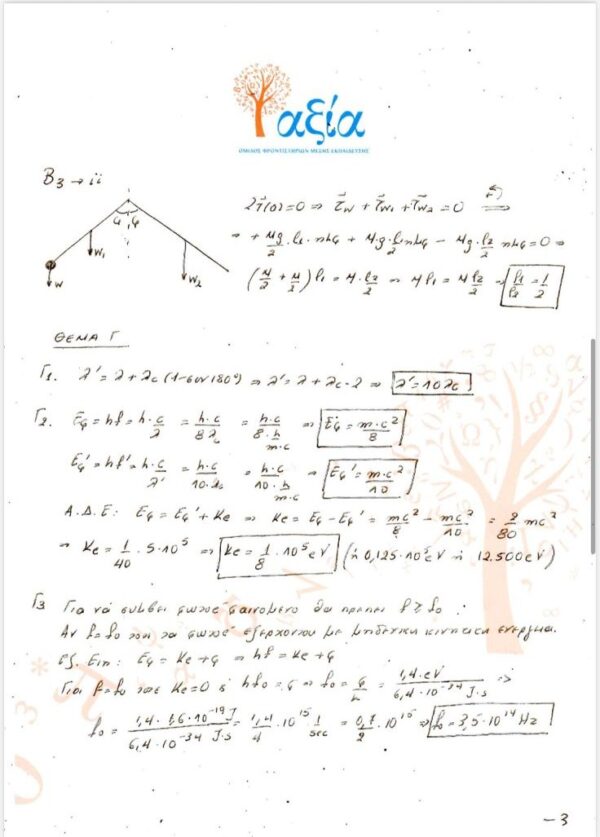 αξία
ΟΜΙΛΟΣ ΦΡΟΝΤΙΣΤΗΡΙΩΝ ΜΕΣΗΣ ΕΚΠΑΙΔΕΥΣΗΣ
B3 → ii
Στ(0)=0 ⇒ τw + τw1 + τw2 = 0 ⇒
φ φ
⇒ + Mg/2 · l1 · ημφ + M·g · l1/2 ημφ − Mg · l2/2 ημφ = 0 ⇒
W1
W2
W
(M/2 + M/2) l1 = M · l2/2 ⇒ M l1 = M l2/2 ⇒ l1/l2 = 1/2
ΘΕΜΑ Γ
Γ1. λ' = λ + λc (1-συν180°) ⇒ λ' = λ + λc · 2 ⇒ λ' = 10λc
Γ2. Eφ = hf = h·c/λ = h·c/8λc = h·c/8·h/m·c ⇒ Eφ = m·c²/8
Eφ' = hf' = h·c/λ' = h·c/10·λc = h·c/10·h/m·c ⇒ Eφ' = m·c²/10
Α.Δ.Ε: Eφ = Eφ' + Ke ⇒ Ke = Eφ - Eφ' = mc²/8 - mc²/10 = 2/80 mc²
⇒ Ke = 1/40 · 5·10⁵ ⇒ Ke = 1/8 · 10⁵ eV (ή 0,125·10⁵eV ή 12.500eV)
Γ3 Για νά συμβεί φωτοφαινόμενο θα πρέπει f ≥ fo :
Αν f=fo τότε τα φωτοe εξέρχονται με μηδενική κινητική ενέργεια.
Εξ. Ein: Eφ = Ke + φ ⇒ hf = Ke + φ
Για f=fo τότε Ke=0 & hfo = φ ⇒ fo = φ/h = 1,4·eV/6,4·10⁻³⁴ J·s ⇒
fo = 1,4·1,6·10⁻¹⁹J/6,4·10⁻³⁴ J·s = 1,4/4 · 10¹⁵ 1/sec = 0,7/2 · 10¹⁵ ⇒ fo = 3,5·10¹⁴ Hz
-3